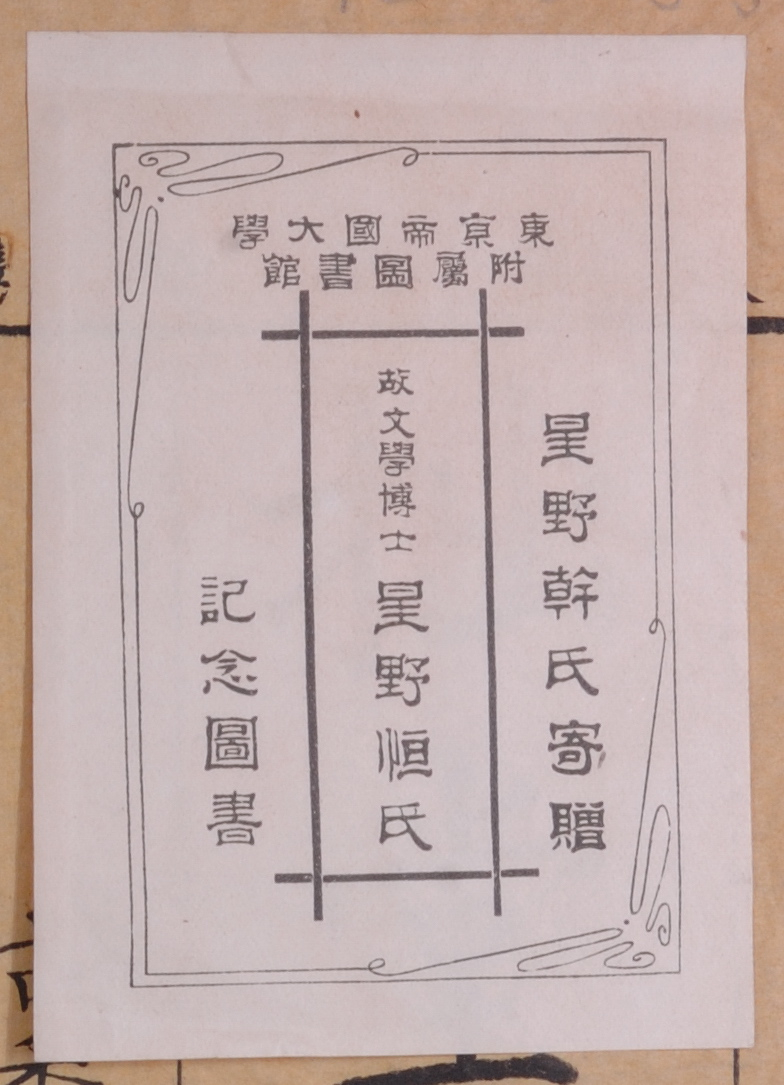 東京帝國大學
附屬圖書館
星野幹氏寄贈
故文學博士星野恒氏
記念圖書